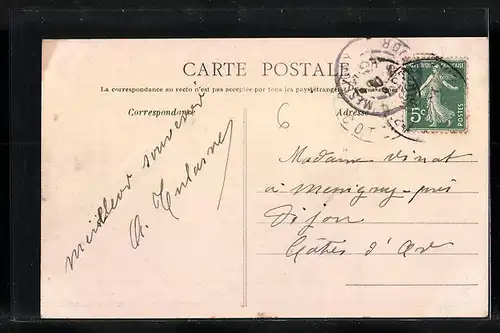 CARTE POSTALE
La correspondance au recto n'est pas acceptée par tous les pays étrangers
Correspondance
Adresse
RÉPUBLIQUE FRANÇAISE
5c
POSTES
6
Meilleur souvenir
A.
Madame Vinat
à Messigny-près
Dijon
Côtes d'Or